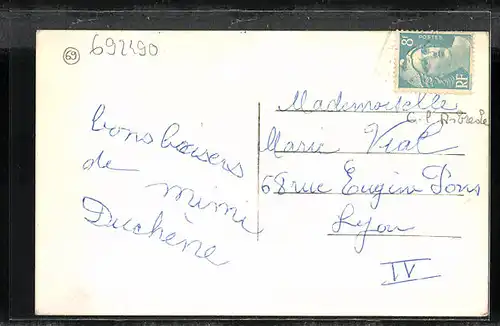 69
692490
8F
POSTES
RF
bons baisers
de mimi
Duchène
Mademoiselle
Marie Vial
68 rue Eugène Pons
Lyon
IV